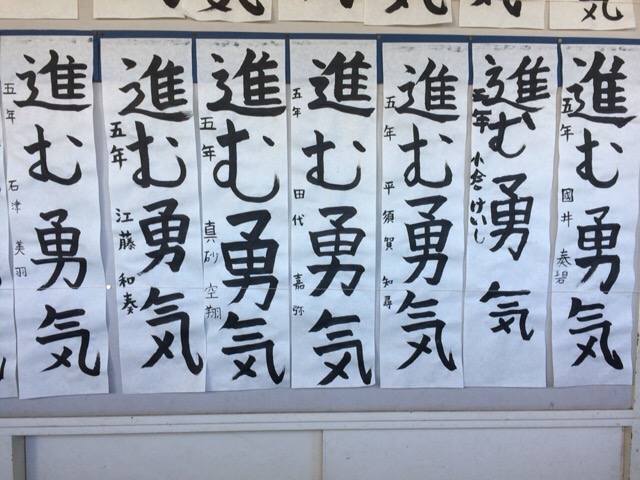 進む勇気
五年 國井 奏碧
進む勇気
五年 小倉 けいし
進む勇気
五年 平須賀 知尋
進む勇気
五年 田代 嘉弥
進む勇気
五年 真砂 空翔
進む勇気
五年 江藤 和奏
進む勇気
五年 石津 美羽